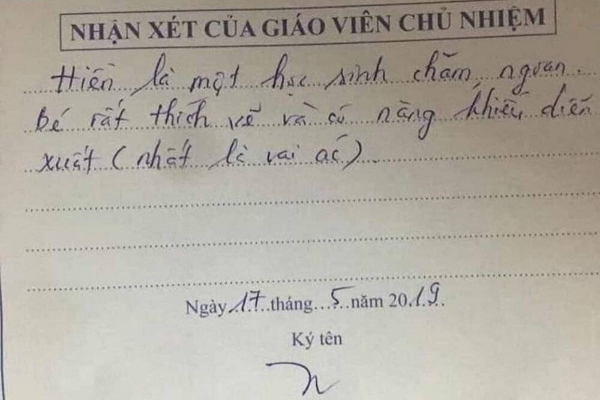 NHẬN XÉT CỦA GIÁO VIÊN CHỦ NHIỆM
Hiền là một học sinh chăm, ngoan.
Bé rất thích vẽ và có năng khiếu diễn
xuất (nhất là vai ác).
Ngày 17 tháng 5 năm 2019
Ký tên